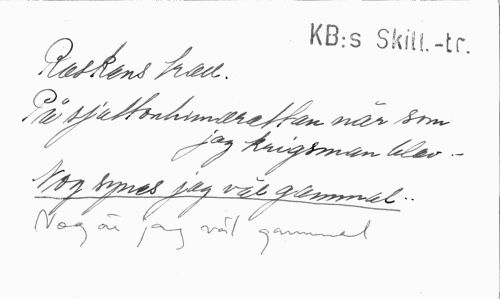 KB:s Skill.-tr.
Raskens kväd.
På sjuttonhundratalan när som
jag krigsman blev –
Nog synes jag väl gammal..
Nog är jag väl gammal